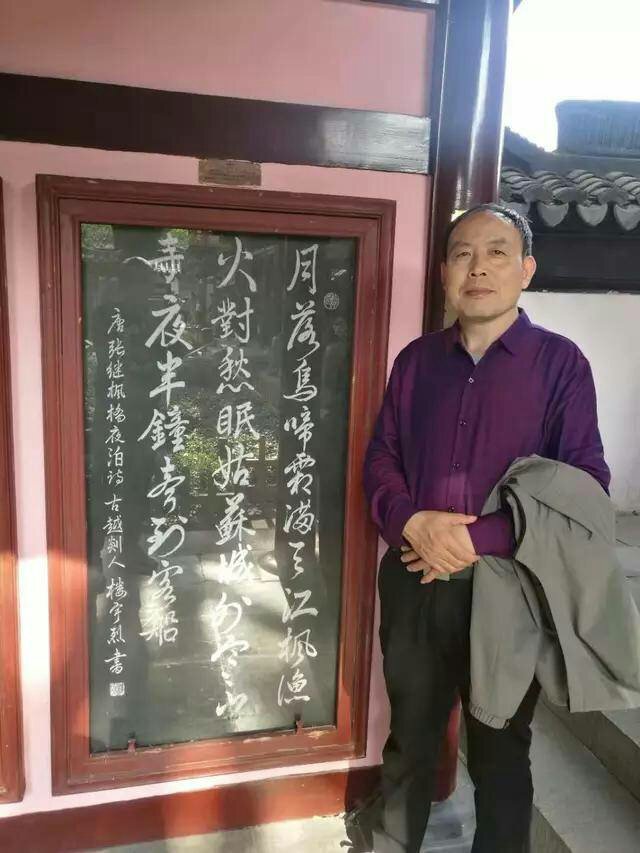 月落烏啼霜滿天江楓漁
火對愁眠姑蘇城外寒山
寺夜半鐘聲到客船
唐張继楓橋夜泊詩 古越剡人 楼宇烈書